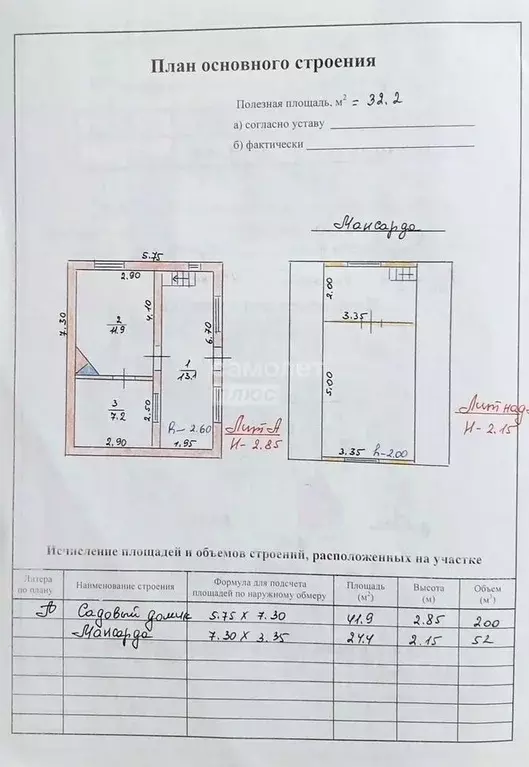 План основного строения
Полезная площадь, м² = 32.2
а) согласно уставу
б) фактически
Мансарда
5.75
2.90
7.30
4.10
2
11.9
6.70
1
13.1
3
7.2
2.50
2.90
h- 2.60
1.95
Лит А
H- 2.85
2.00
3.35
5.00
3.35
h-2.00
Лит над
H- 2.15
самолет
плюс
Исчисление площадей и объемов строений, расположенных на участке
Литера по плану
Наименование строения
Формула для подсчета площадей по наружному обмеру
Площадь (м²)
Высота (м)
Объем (м³)
А Садовый домик 5.75 х 7.30 41.9 2.85 200
Мансарда 7.30 х 3.35 24.4 2.15 52